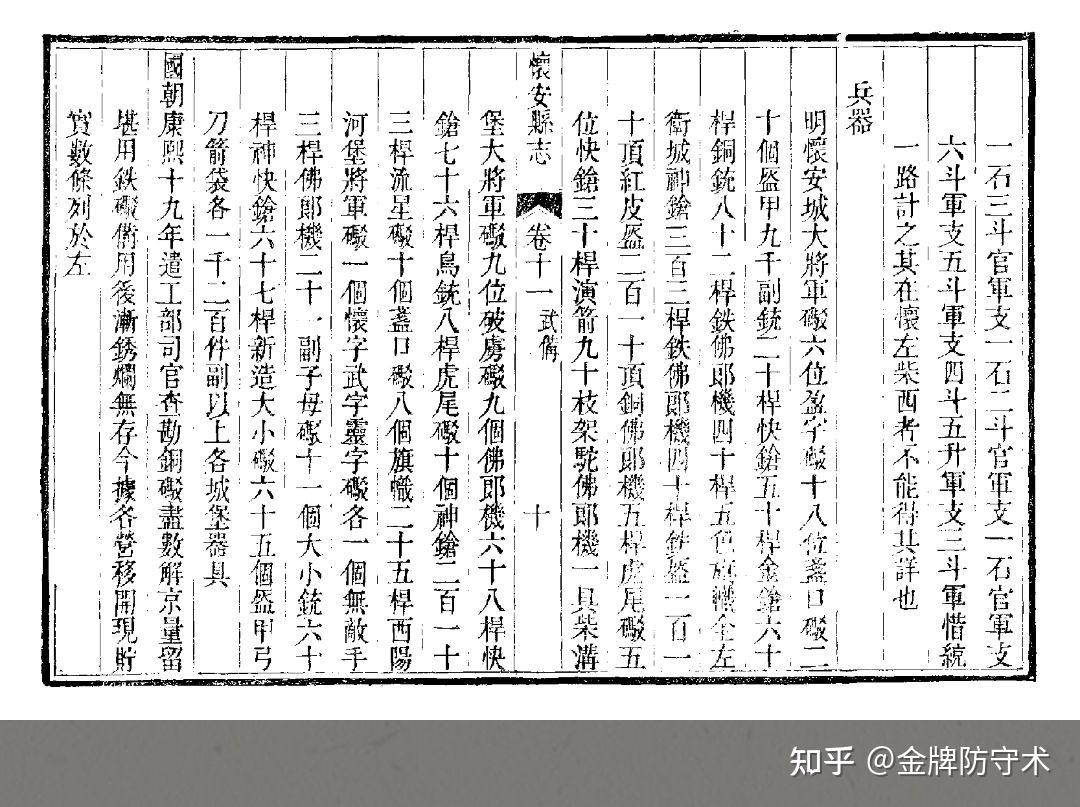 一石三斗官軍支一石二斗官軍支一石官軍支
六斗軍支五斗軍支四斗五升軍支三斗軍惜統
一路計之其在懷左柴西者不能得其詳也
兵器
明懷安城大將軍礮六位盈字礮十八位盞口礮二
十個盔甲九千副銃二十桿快鎗五十桿金鎗六十
桿銅銃八十二桿鉄佛郎機四十桿五色旗幟全左
衛城神鎗三百三桿鉄佛郎機四十桿鉄盔一百一
十頂紅皮盔二百一十頂銅佛郎機五桿虎尾礮五
位快鎗三十桿演箭九十枝架駝佛郎機一具柴溝
懷安縣志 卷十一 武備 十
堡大將軍礮九位破虜礮九個佛郎機六十八桿快
鎗七十六桿鳥銃八桿虎尾礮十個神鎗二百一十
三桿流星礮十個盞口礮八個旗幟二十五桿西陽
河堡將軍礮一個懷字武字靈字礮各一個無敵手
三桿佛郎機二十一副子母礮十一個大小銃六十
桿神快鎗六十七桿新造大小礮六十五個盔甲弓
刀箭袋各一千二百件副以上各城堡器具
國朝康熙十九年遣工部司官查勘銅礮盡數解京量留
堪用鉄礮俻用後漸銹爛無存今據各營移開現貯
實數條列於左
知乎 @金牌防守术